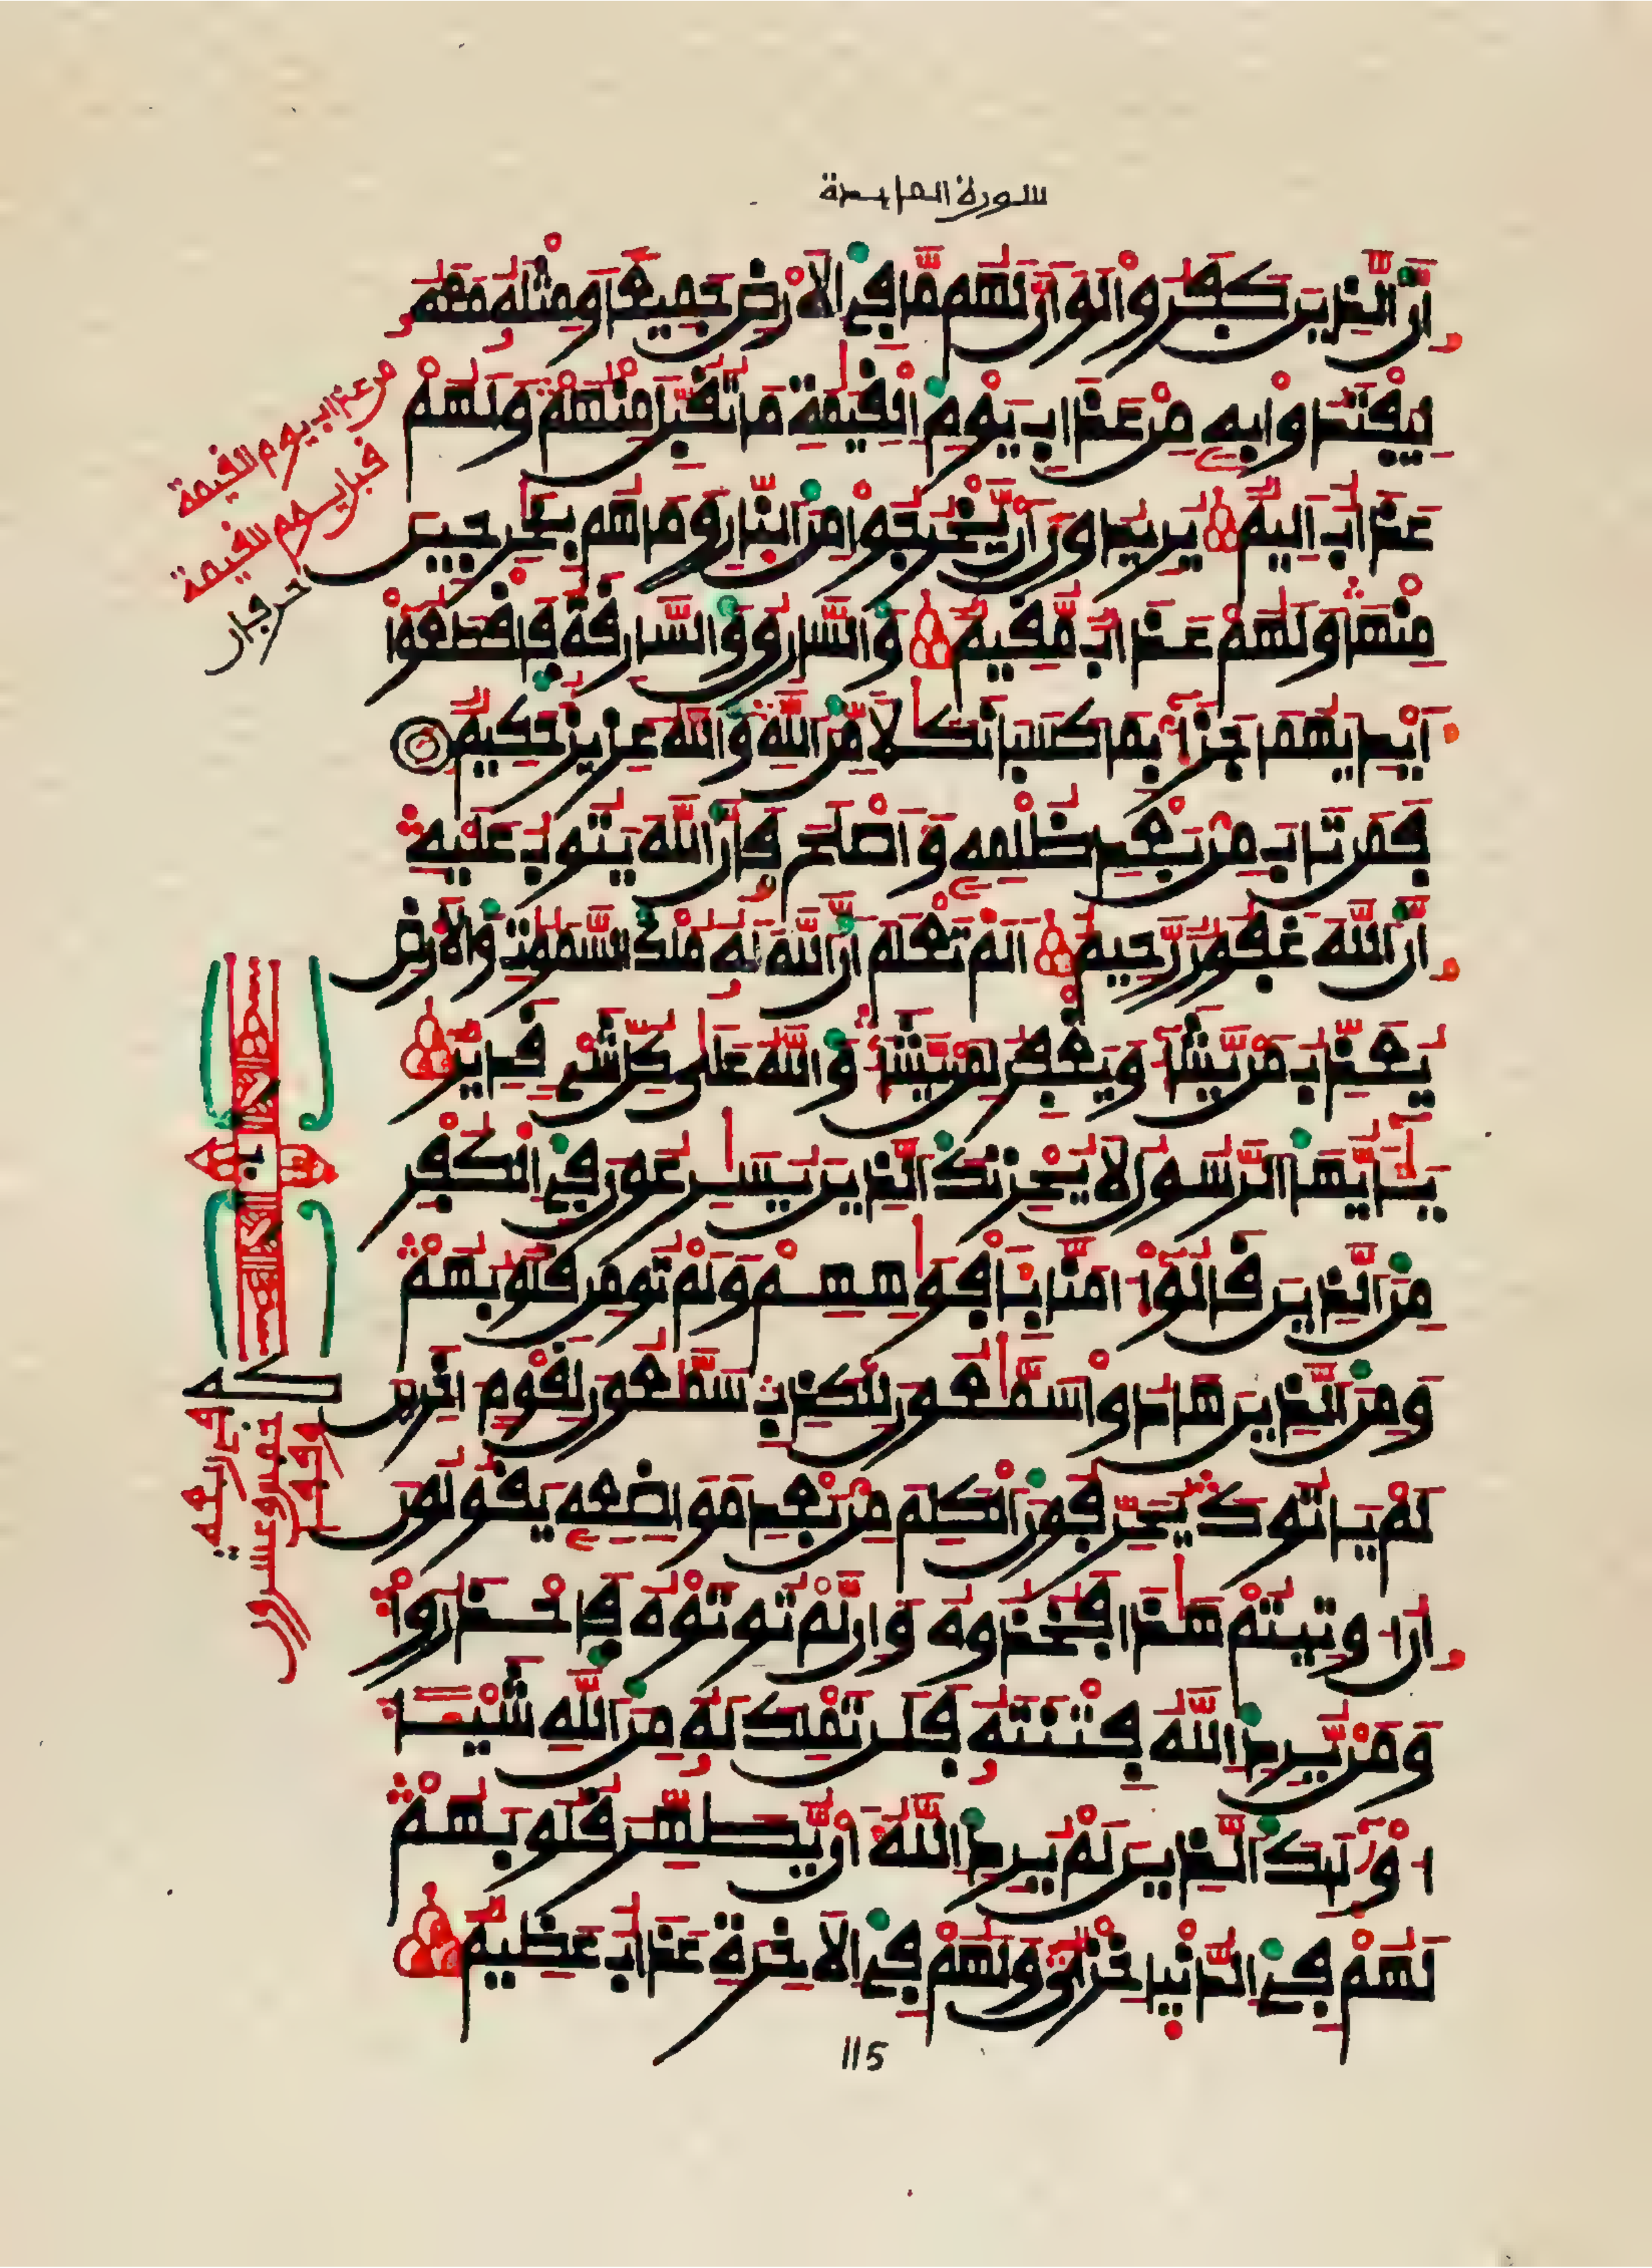 سورة المايدة
إِنَّ الذِينَ كَفَرُوا لَوَ اَنَّ لَهُم مَّا فِي الاَرْضِ جَمِيعًا وَمِثْلَهُ مَعَهُ
لِيَفْتَدُوا بِهِ مِنْ عَذَابِ يَوْمِ الْقِيَمَةِ مَا تُقُبِّلَ مِنْهُمْ وَلَهُمْ
عَذَابٌ اَلِيمٌ يُرِيدُونَ أَنْ يَّخْرُجُوا مِنَ النَّارِ وَمَا هُم بِخَرِجِينَ
مِنْهَا وَلَهُمْ عَذَابٌ مُّقِيمٌ وَالسَّارِقُ وَالسَّارِقَةُ فَاقْطَعُوا
أَيْدِيَهُمَا جَزَاءً بِمَا كَسَبَا نَكَلًا مِّنَ اللَّهِ وَاللَّهُ عَزِيزٌ حَكِيمٌ
فَمَن تَابَ مِنْ بَعْدِ ظُلْمِهِ وَأَصْلَحَ فَإِنَّ اللَّهَ يَتُوبُ عَلَيْهِ
إِنَّ اللَّهَ غَفُورٌ رَّحِيمٌ اَلَمْ تَعْلَمَ اَنَّ اللَّهَ لَهُ مُلْكُ السَّمَوَتِ وَالاَرْضِ
يُعَذِّبُ مَنْ يَّشَاءُ وَيَغْفِرُ لِمَنْ يَّشَاءُ وَاللَّهُ عَلَى كُلِّ شَيْءٍ قَدِيرٌ
يَأَيُّهَا الرَّسُولُ لَا يُحْزِنكَ الذِينَ يُسَرِعُونَ فِي الْكُفْرِ
مِنَ الذِينَ قَالُوا ءَامَنَّا بِأَفْوَهِهِمْ وَلَمْ تُومِن قُلُوبُهُمْ
وَمِنَ الذِينَ هَادُوا سَمَّعُونَ لِلْكَذِبِ سَمَّعُونَ لِقَوْمٍ اخَرِينَ
لَمْ يَاتُوكَ يُحَرِّفُونَ الْكَلِمَ مِنْ بَعْدِ مَوَاضِعِهِ يَقُولُونَ
إِنُ اوتِيتُمْ هَذَا فَخُذُوهُ وَإِن لَّمْ تُوتَوْهُ فَاحْذَرُوا
وَمَنْ يُّرِدِ اللَّهُ فِتْنَتَهُ فَلَن تَمْلِكَ لَهُ مِنَ اللَّهِ شَيْئًا
اوْلَئِكَ الذِينَ لَمْ يُرِدِ اللَّهُ أَنْ يُّطَهِّرَ قُلُوبَهُمْ
لَهُمْ فِي الدُّنْيَا خِزْيٌ وَلَهُمْ فِي الاَخِرَةِ عَذَابٌ عَظِيمٌ
115
من عذاب يوم القيمة
قبل يوم القيمة
حرفان